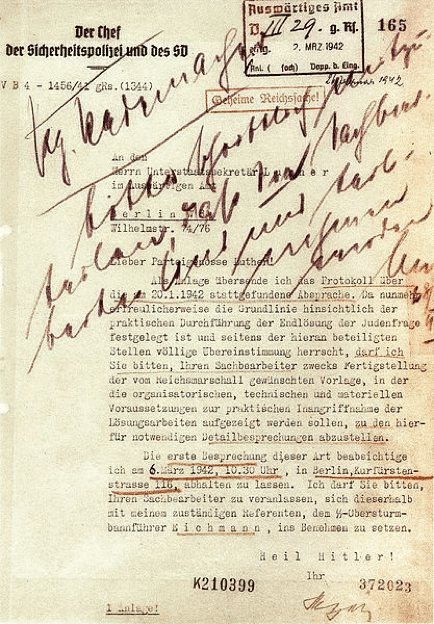 Auswärtiges Amt
D. III 29. g. Rs.
eing. 2. MRZ. 1942
Anl. (fach) Dopp. b. Eing.
165
Der Chef
der Sicherheitspolizei und des SD
V B 4 - 1456/41 gRs. (1344)
1942
Geheime Reichssache!
An den
Herrn Unterstaatssekretär L
im Auswärtigen Amt
Berlin
Wilhelmstr. 74/76
Lieber Parteigenosse Luther!
Als Anlage übersende ich das Protokoll über
die am 20.1.1942 stattgefundene Absprache. Da nunmehr
erfreulicherweise die Grundlinie hinsichtlich der
praktischen Durchführung der Endlösung der Judenfrage
festgelegt ist und seitens der hieran beteiligten
Stellen völlige Übereinstimmung herrscht, darf ich
Sie bitten, Ihren Sachbearbeiter zwecks Fertigstellung
der vom Reichsmarschall gewünschten Vorlage, in der
die organisatorischen, technischen und materiellen
Voraussetzungen zur praktischen Inangriffnahme der
Lösungsarbeiten aufgezeigt werden sollen, zu den hier-
für notwendigen Detailbesprechungen abzustellen.
Die erste Besprechung dieser Art beabsichtige
ich am 6. März 1942, 10.30 Uhr, in Berlin, Kurfürsten-
strasse 116, abhalten zu lassen. Ich darf Sie bitten,
Ihren Sachbearbeiter zu veranlassen, sich dieserhalb
mit meinem zuständigen Referenten, dem ᛋᛋ-Obersturm-
bannführer Eichmann, ins Benehmen zu setzen.
Heil Hitler!
Ihr
K210399
372023
1 Anlage!